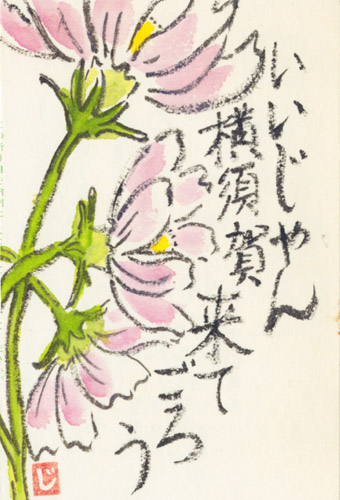 いいじゃん
横須賀来て
ごろう
じ